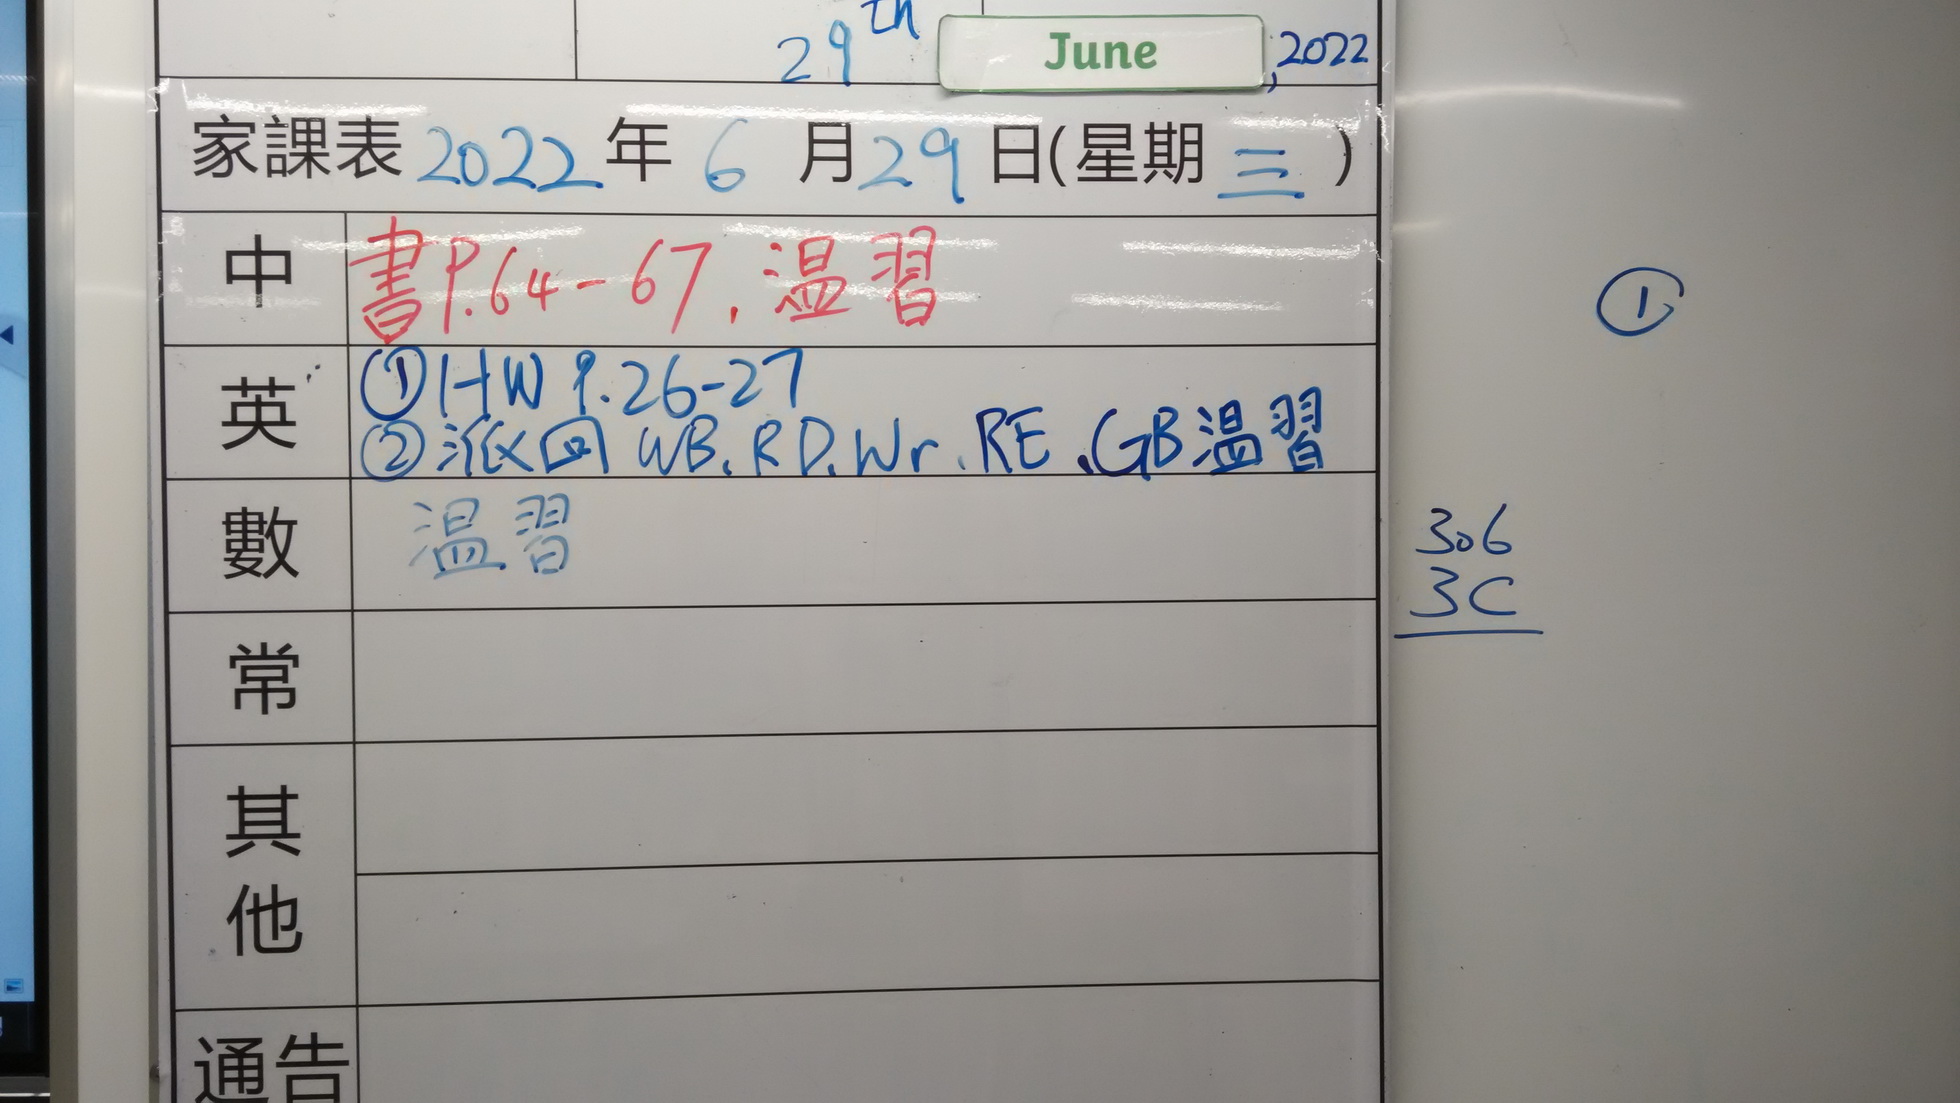 29th June, 2022
家課表2022年6月29日(星期三)
中 書P.64-67, 温習
英 ①HW P.26-27
②派回 WB, RD, Wr, RE, GB温習
數 温習
常
其他
通告
①
306
3C